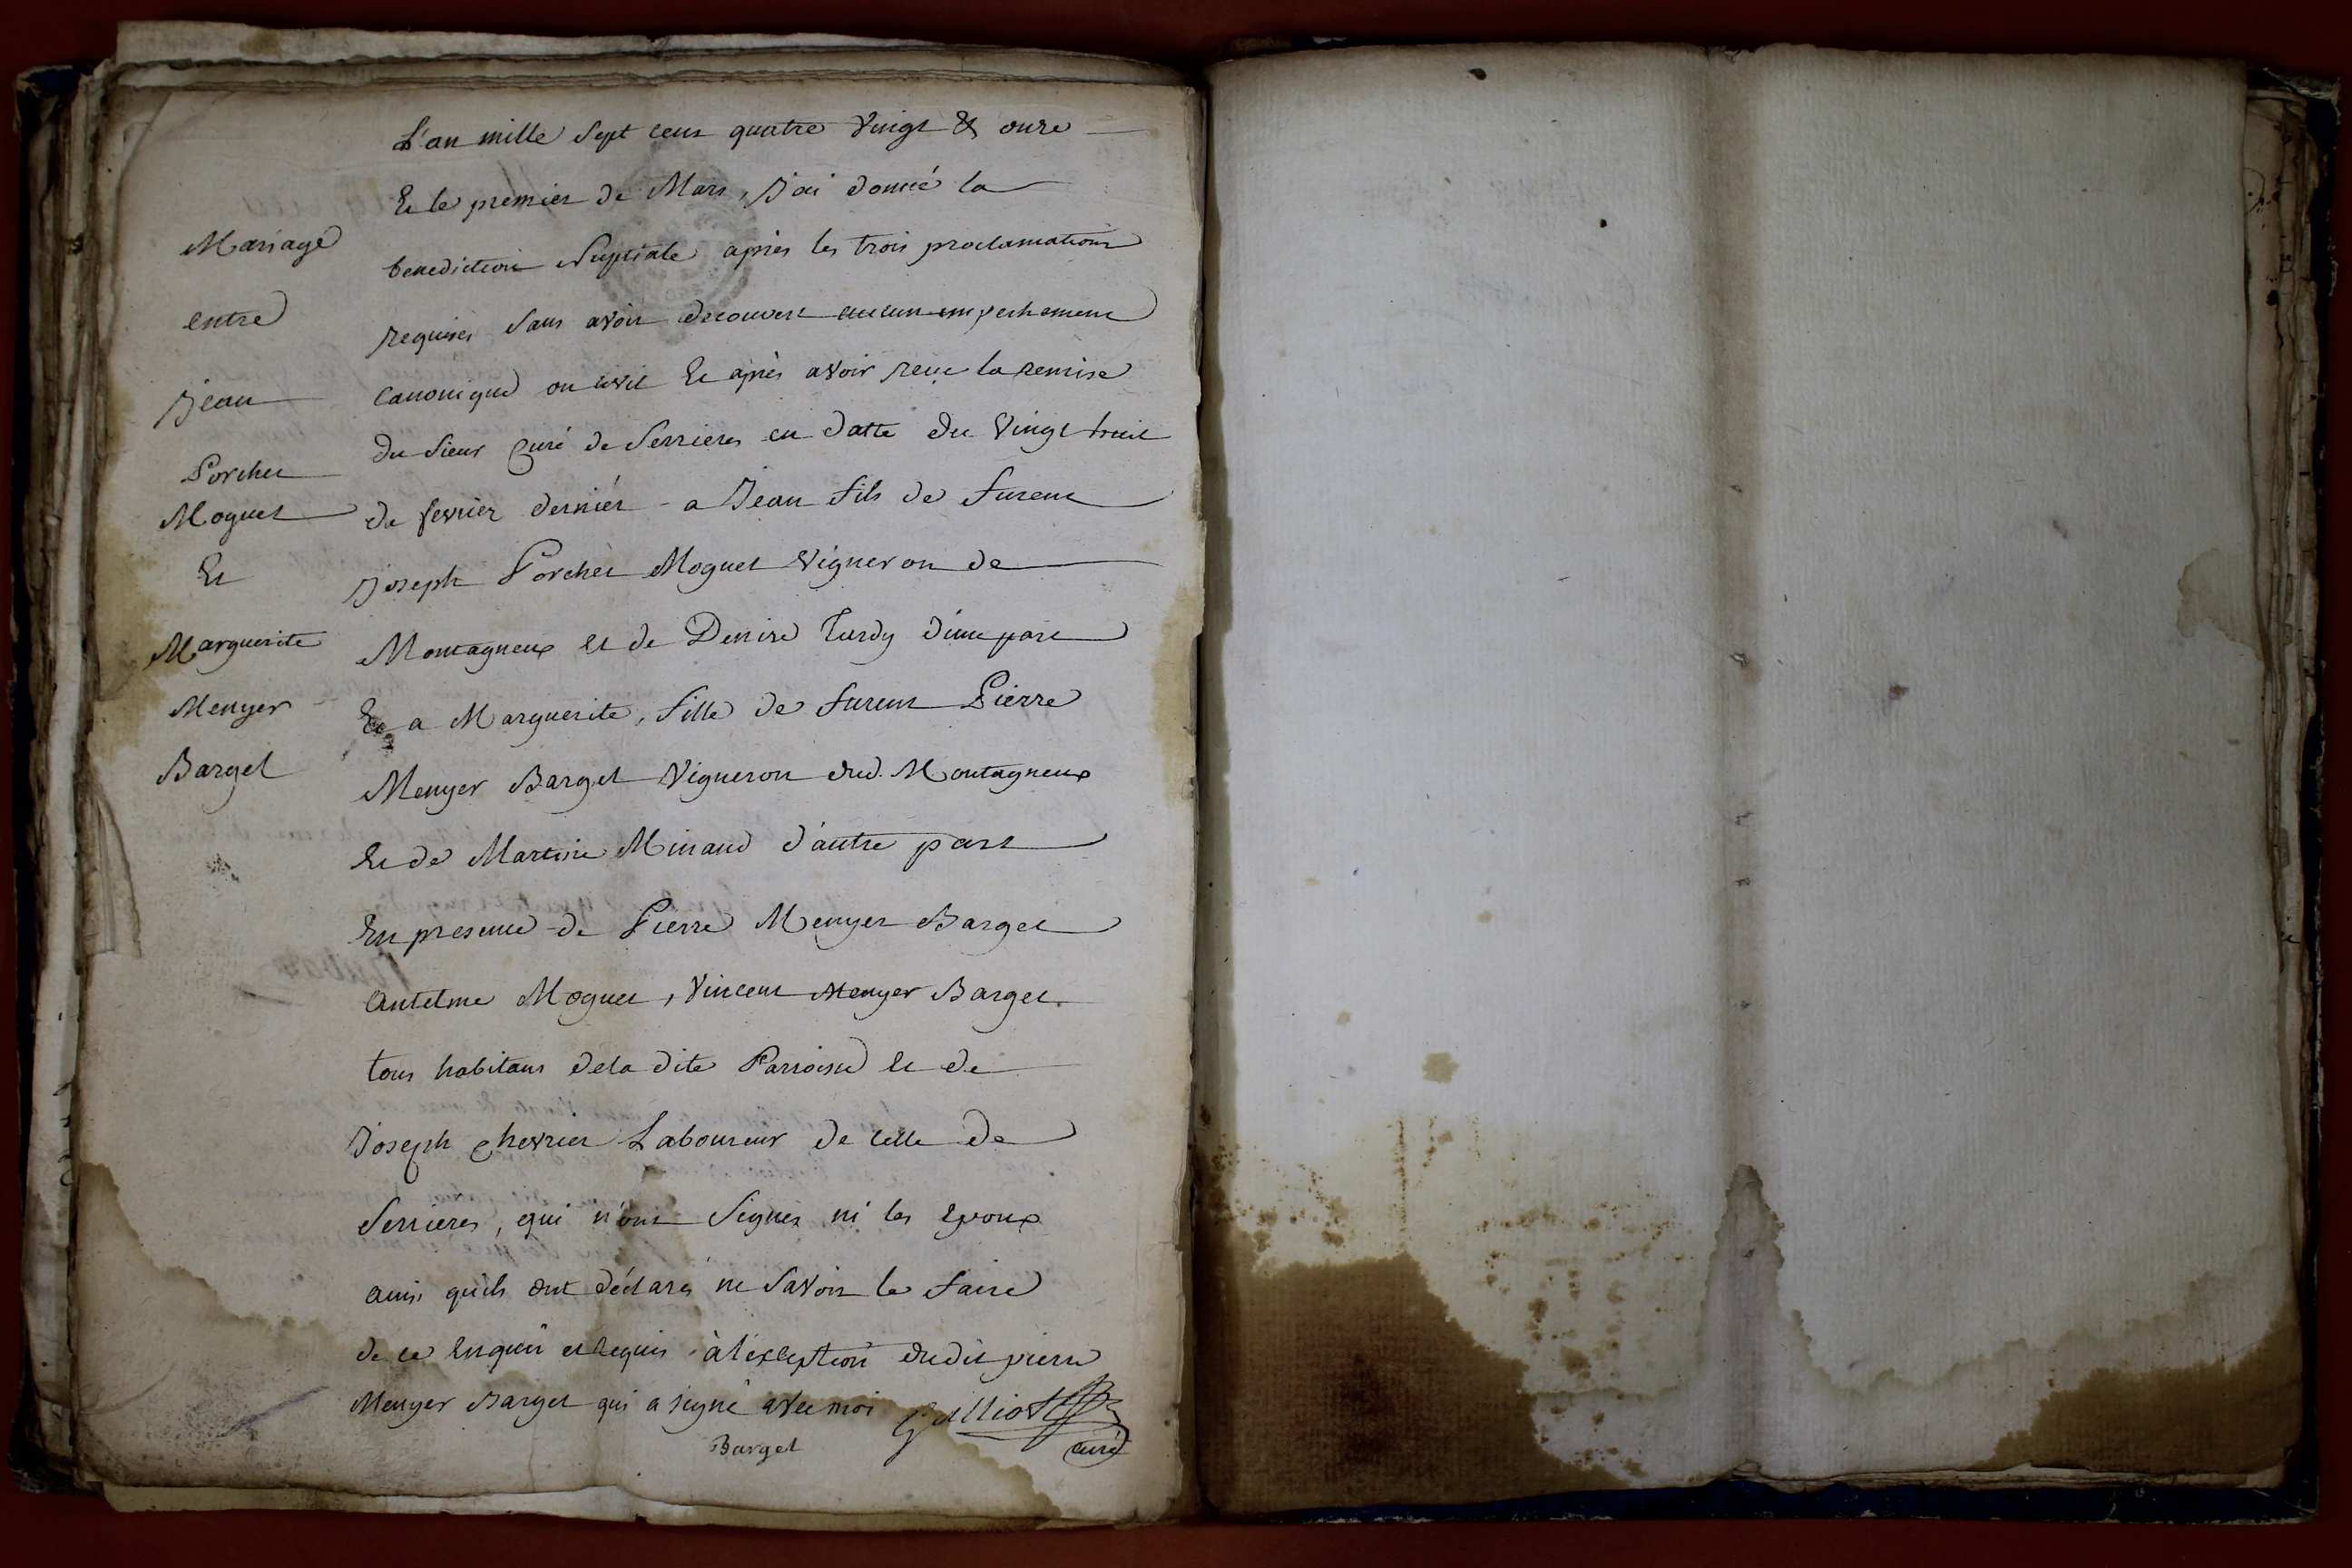 Mariage
entre
Jean
Porcher
Moguet
Et
Marguerite
Menyer
Barget
L'an mille Sept cent quatre Vingt & onze
Et le premier de Mars, J'ai donné la
benediction Nuptiale après les trois proclamations
requises sans avoir decouvert aucun empechement
canonique ou civil Et après avoir reçue la remise
du Sieur Curé de Serrieres en datte du Vingt huit
de fevrier dernier a Jean fils de fureur
Joseph Porcher Moguet Vigneron de
Montagneux et de Denise Turdy d'une part
Et a Marguerite, fille de fureur Pierre
Menyer Barget Vigneron dud. Montagneux
Et de Martine Minaud d'autre part
En presence de Pierre Menyer Barget
antelme Moguet, Vincent Menyer Barget
tous habitans dela dite Parroisse et de
Joseph Chevrier Laboureur de celle de
Serrieres, qui n'ont Signés ni les Epoux
ainsi qu'ils ont déclaré ne savoir le faire
de ce Enquis et Requis à l'exception dudit pierre
Menyer Barget qui a signé avec moi
Barget
curé